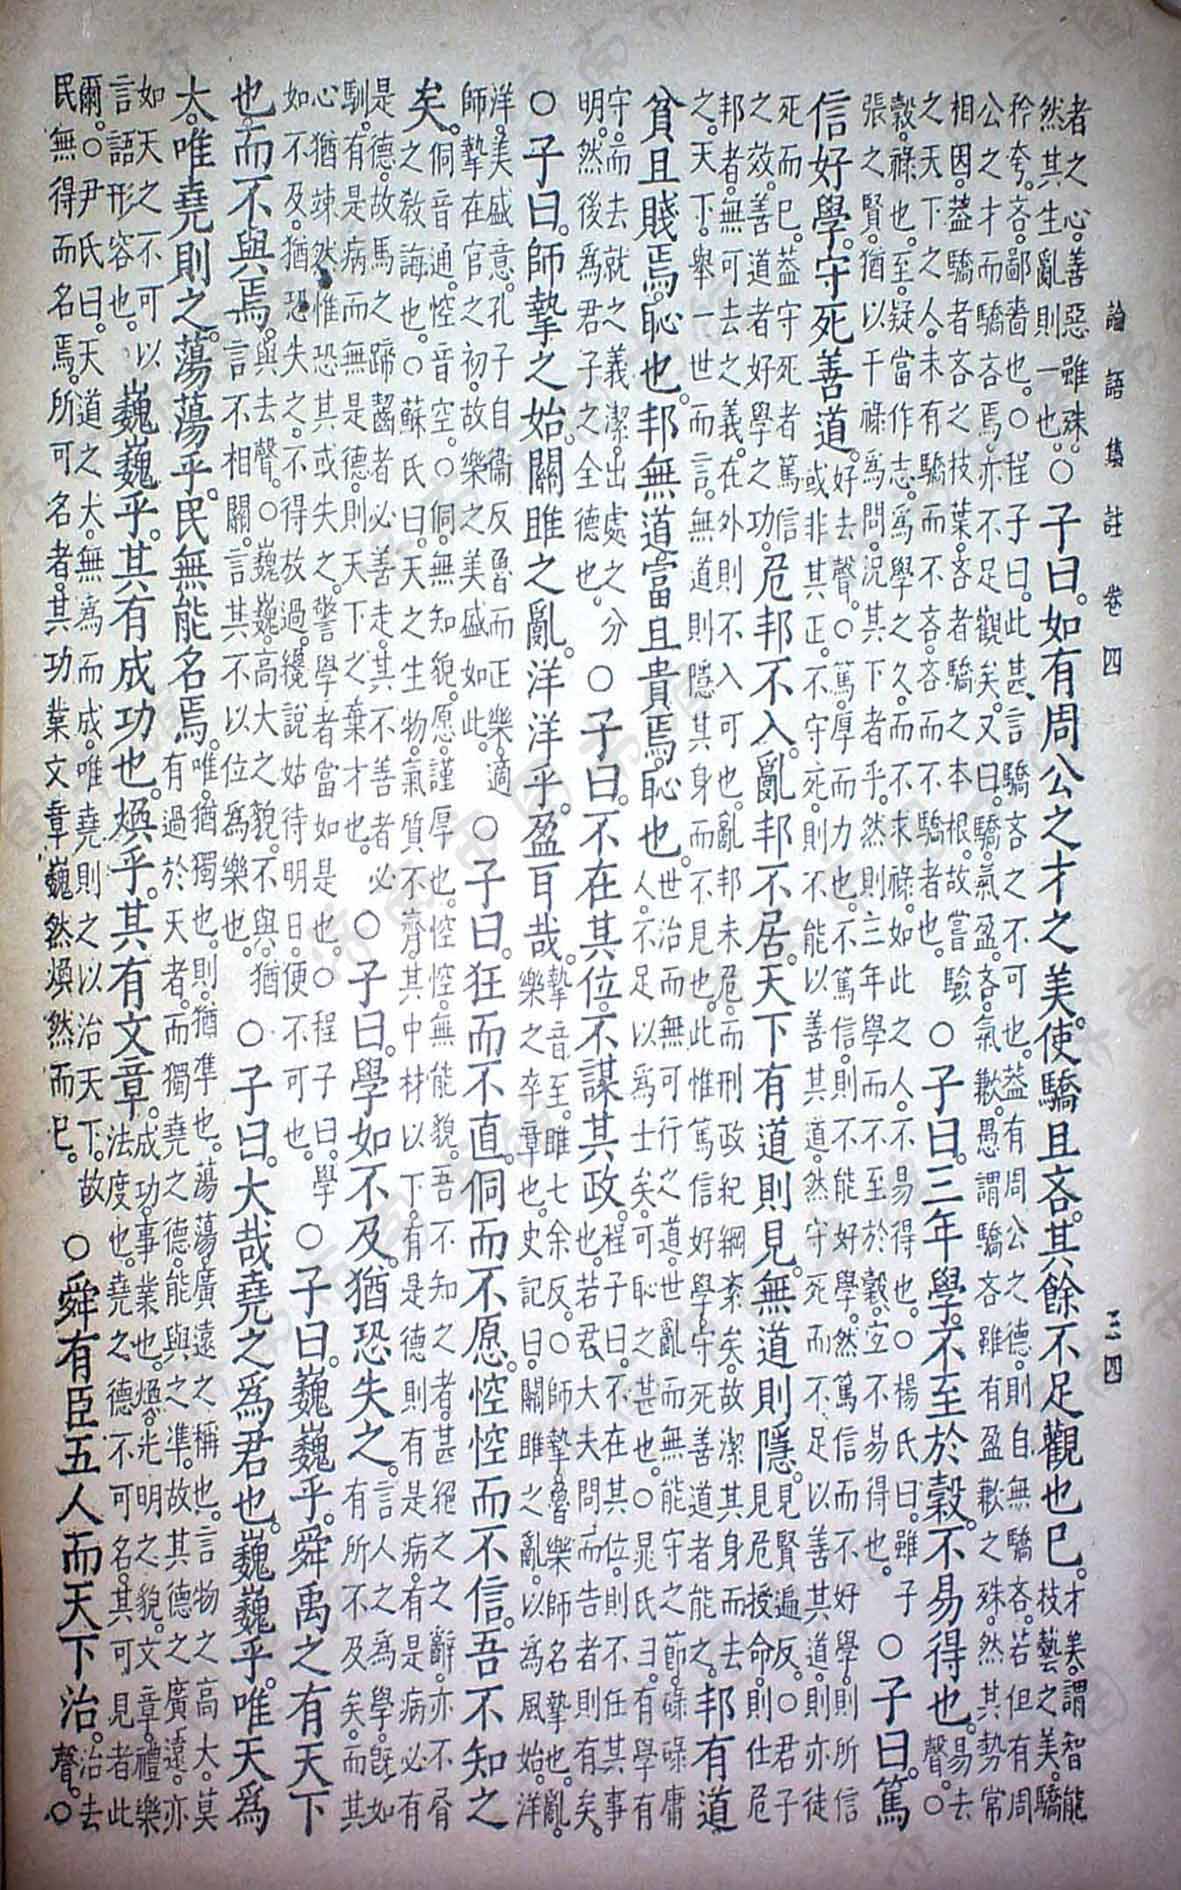 論語集註 卷四 三四
者之心。善惡雖殊。
然其生亂則一也。
○子曰。如有周公之才之美。使驕且吝。其餘不足觀也已。
才美。謂智能
技藝之美。驕
矜夸。吝。鄙嗇也。○程子曰。此甚言驕吝之不可也。蓋有周公之德。則自無驕吝。若但有周
公之才而驕吝焉。亦不足觀矣。又曰。驕。氣盈。吝。氣歉。愚謂驕吝雖有盈歉之殊。然其勢常
相因。蓋驕者吝之枝葉。吝者驕之本根。故嘗驗
之天下之人。未有驕而不吝。吝而不驕者也。
○子曰。三年學。不至於穀。不易得也。
易去
聲。○
穀。祿也。至。疑當作志。爲學之久。而不求祿。如此之人。不易得也。○楊氏曰。雖子
張之賢。猶以干祿爲問。況其下者乎。然則三年學而不至於穀。宜不易得也。
○子曰。篤
信好學。守死善道。
好去聲。○篤。厚而力也。不篤信。則不能好學。然篤信而不好學。則所信
或非其正。不守死。則不能以善其道。然守死而不足以善其道。則亦徒
死而已。蓋守死者篤信
之效。善道者好學之功。
危邦不入。亂邦不居。天下有道則見。無道則隱。
見賢遍反。○君子
見危授命。則仕危
邦者。無可去之義。在外則不入可也。亂邦未危。而刑政紀綱紊矣。故潔其身而去
之。天下。舉一世而言。無道則隱其身而不見也。此惟篤信好學守死善道者能之。
邦有道
貧且賤焉。恥也。邦無道富且貴焉。恥也。
世治而無可行之道。世亂而無能守之節。碌碌庸
人。不足以爲士矣。可恥之甚也。○晁氏曰。有學有
守。而去就之義潔。出處之分
明。然後爲君子之全德也。
○子曰。不在其位。不謀其政。
程子曰。不在其位。則不任其事
也。若君大夫問而告者則有矣。
○子曰。師摯之始。關雎之亂。洋洋乎。盈耳哉。
摯音至。雎七余反。○師摯。魯樂師名摯也。亂。
樂之卒章也。史記曰。關雎之亂。以爲風始。洋
洋。美盛意。孔子自衞反魯而正樂。適
師摯在官之初。故樂之美盛如此。
○子曰。狂而不直。侗而不愿。悾悾而不信。吾不知之
矣。
侗音通。悾音空。○侗。無知貌。愿。謹厚也。悾悾。無能貌。吾不知之者。甚絕之之辭。亦不屑
之教誨也。○蘇氏曰。天之生物。氣質不齊。其中材以下。有是德則有是病。有是病必有
是德。故馬之蹄齧者必善走。其不善者必
馴。有是病而無是德。則天下之棄才也。
○子曰。學如不及。猶恐失之。
言人之爲學。旣如
有所不及矣。而其
心猶竦然。惟恐其或失之。警學者當如是也。○程子曰。學
如不及。猶恐失之。不得放過。纔說姑待明日。便不可也。
○子曰。巍巍乎。舜禹之有天下
也。而不與焉。
與去聲。○巍巍。高大之貌。不與。猶
言不相關。言其不以位爲樂也。
○子曰。大哉堯之爲君也。巍巍乎。唯天爲
大。唯堯則之。蕩蕩乎。民無能名焉。
唯。猶獨也。則。猶準也。蕩蕩。廣遠之稱也。言物之高大。莫
有過於天者。而獨堯之德。能與之準。故其德之廣遠。亦
如天之不可以
言語形容也。
巍巍乎。其有成功也。煥乎。其有文章。
成功。事業也。煥。光明之貌。文章。禮樂
法度也。堯之德不可名。其可見者此
爾。○尹氏曰。天道之大。無爲而成。唯堯則之以治天下。故
民無得而名焉。所可名者。其功業文章巍然煥然而已。
○舜有臣五人而天下治。
治去
聲。○